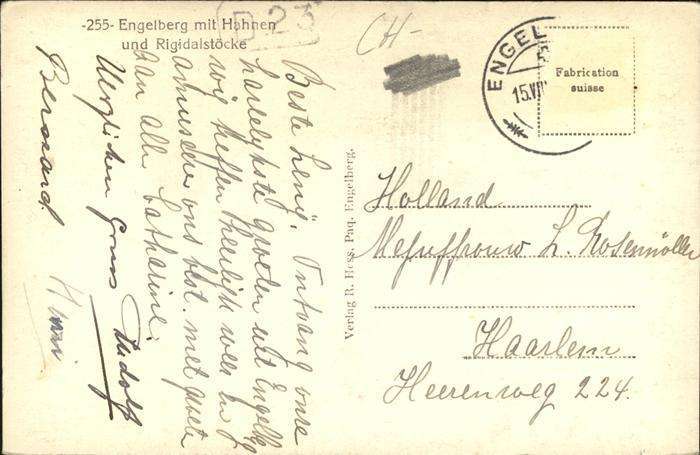 -255- Engelberg mit Hahnen
und Rigidalstöcke
CH-
ENGEL
15.VII
Fabrication
suisse
Verlag R. Hess. Pap. Engelberg.
Beste Leny. Ontvang onze
hartelijkste groeten uit Engelberg
wij treffen heerlijk weer en
amuseeren ons best. met groeten
aan alle Catharine.
Herzlichen Gruss Rudolf
Bernard.
Holland
Mejuffrouw L. Rosenmöller
Haarlem
Heerenweg 224.